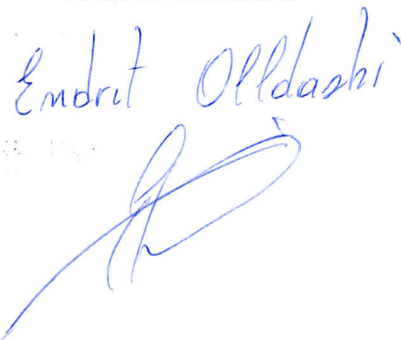 Endrit Olldashi